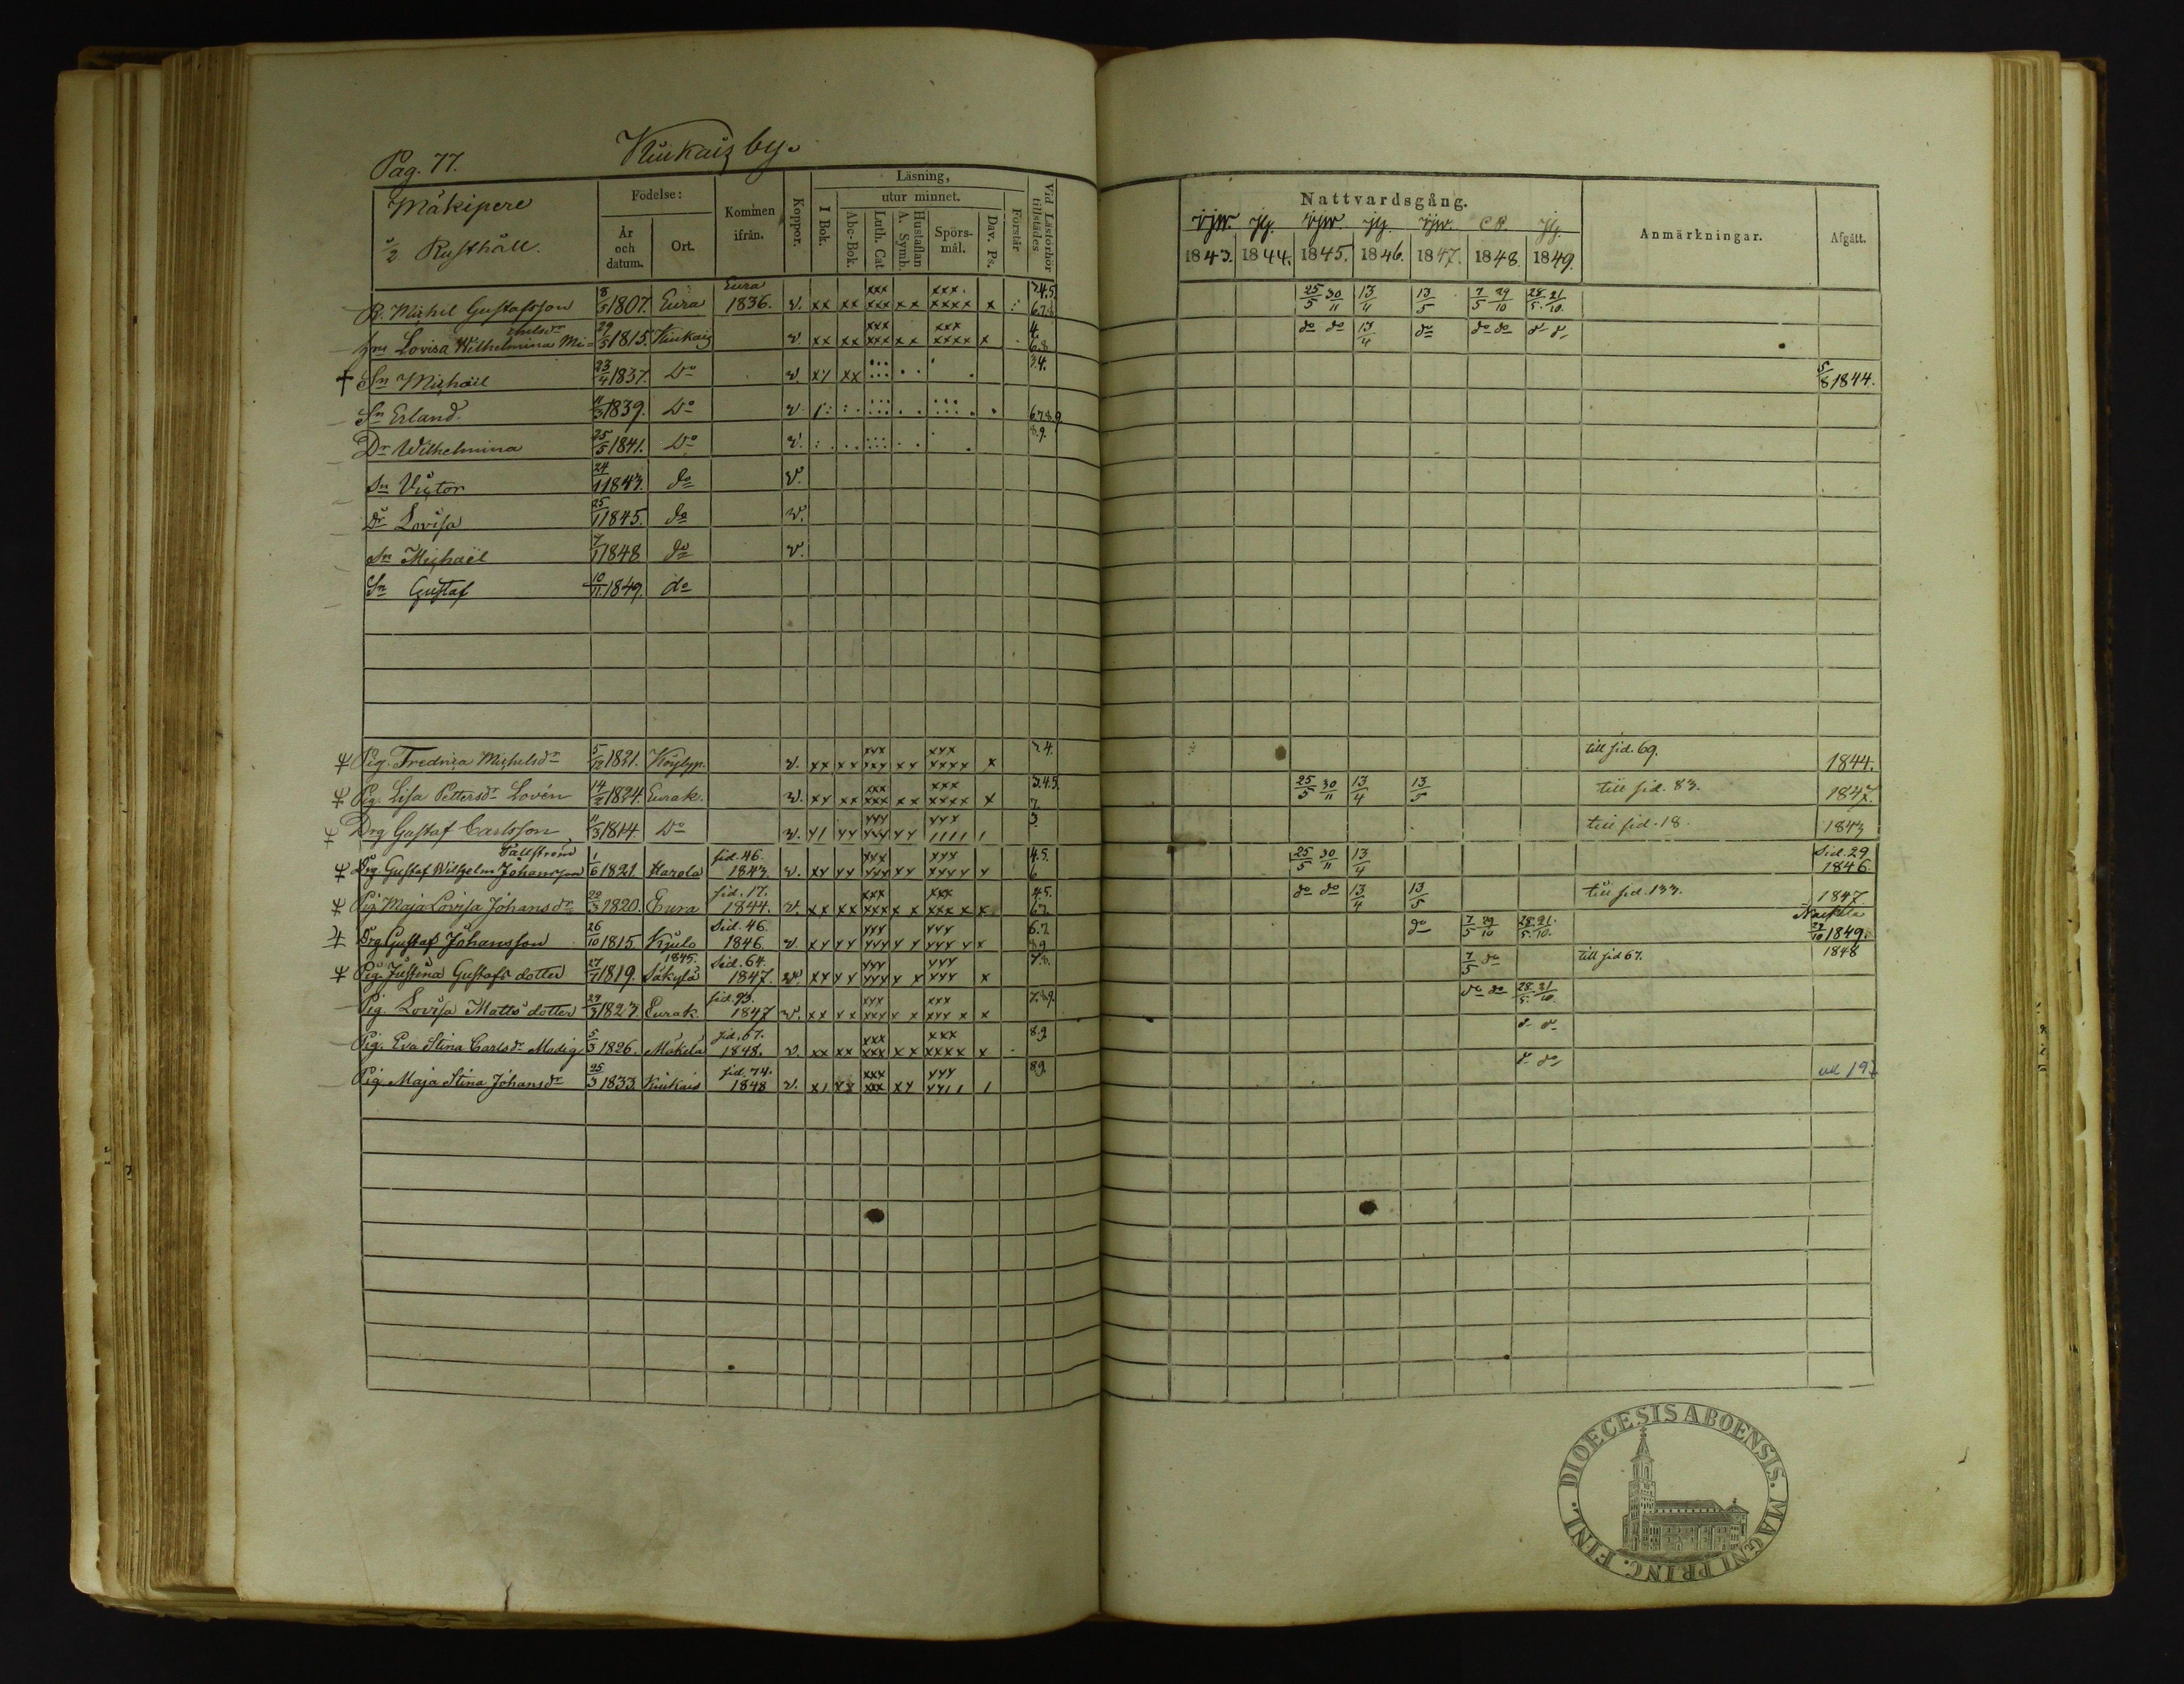 Pag. 77.
Kiukais by.
Mäkipere
1/2 Rusthåll.
Födelse:
År och datum.
Ort.
Kommen ifrån.
Koppor.
Läsning,
I Bok.
utur minnet.
Abc-Bok.
Luth. Cat
Hustaflan A. Symb.
Spörs-mål.
Dav. Ps.
Förstår
Vid Läsförhör tillstädes
Nattvardsgång.
1843. 1844. 1845. 1846. 1847. 1848. 1849.
Anmärkningar.
Afgått.
R. Michel Gustafsson 8/5 1807. Eura Eura 1836. v. xx xx xxx xxx xx xxx. xxxx x 3.4.5. 6.7.8 25/5 30/11 13/4 13/5 7/5 29/10 28/5. 21/10.
Hu Lovisa Wilhelmina Michelsdr 29/5 1815. Kiukais v xx xx xxx xxx xx xxx xxxx x 4. 6.8 do do 13/4 do do do d d
† Sn Michaël 23/4 1837. Do v. x/ xx 3.4. 5/8 1844.
Sn Erland. 11/3 1839. Do v. 6.7.8.9
Dr Wilhelmina 25/5 1841. Do v. 8.9.
Sn Victor 24/1 1843. do v.
Dr Lovisa 25/1 1845. do v.
Sn Michaël 7/1 1848 do v.
Sn Gustaf 10/11 1849. do
Pig. Fredrica Michelsdr 5/12 1821. v. xx xx xxx xxx xx xxx xxxx x 3.4. till sid. 69. 1844.
Pig. Lisa Pettersdr Lovén 14/2 1824. Eurak. v. xx xx xxx xxx xx xxx xxxx x 3.4.5. 7. 25/5 30/11 13/4 13/5 till sid. 83. 1847.
Drg Gustaf Carlsson 11/3 1814 Do v. x/ xx xxx xxx xx xxx //// / 3. till sid. 18. 1843
Drg. Gustaf Wilhelm Johansson Tallström 1/6 1821 Harola sid. 46. 1843. v. xx xx xxx xxx xx xxx xxxx x 4.5. 6 25/5 30/11 13/4 Sid. 29 1846.
Pig Maja Lovisa Johansdr 22/3 1820. Eura sid. 17. 1844. v. xx xx xxx xxx x x xxx xxx x x 4.5. 6.7. do do 13/4 13/5 till sid. 133. 1847
Drg Gustaf Johansson 26/10 1815 Kjulo Sid. 46. 1846 v xx xx xxx xxx x x xxx xxx x x 6.7. 8.9. do 7/5 29/10 28/5. 21/10. 27/10 1849.
Pig. Justina Gustafs dotter 27/7 1819. Säkylä 1845. Sid. 64. 1847. v. xx xx xxx xxx x x xxx xxx x 7.8. 7/5 do till sid 67. 1848
Pig. Lovisa Matts dotter 29/3 1823. Eurak sid. 93. 1847 v. xx xx xxx xxx x x xxx xxx x x 7.8.9. do do 28/5. 21/10.
Pig. Eva Stina Carlsdr Modig 5/3 1826. Mäkelä sid. 67. 1848. v. xx xx xxx xxx xx xxx xxxx x 8.9. d d
Pig Maja Stina Johansdr 25/3 1833 Kiukais sid. 74. 1848 v. x/ xx xxx xxx xx xxx xx// / 8.9. d do
DIOECESIS ABOENSIS. MAGNI PRINC. FINL.